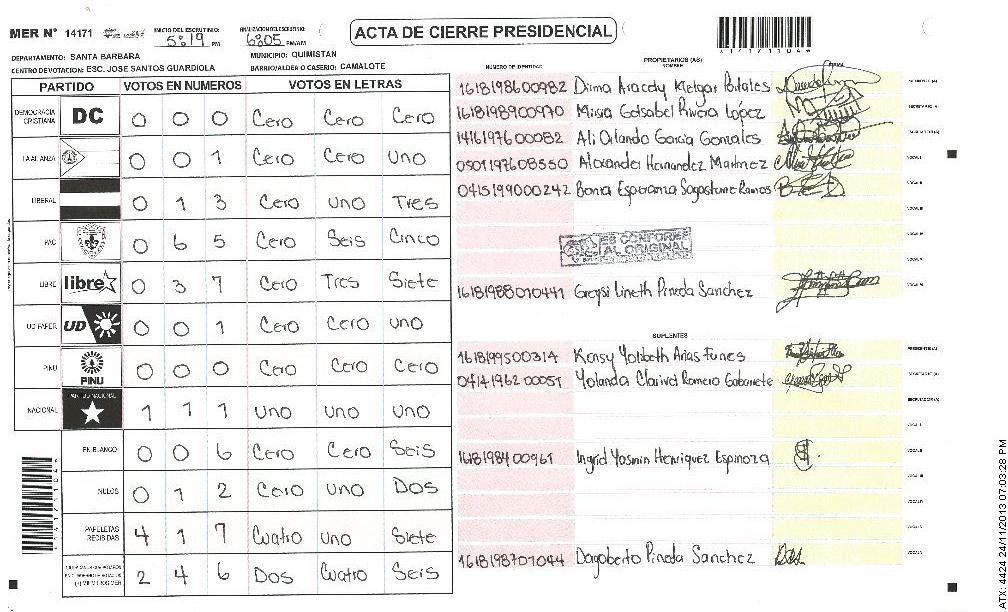 MER Nº 14171
INICIO DEL ESCRUTINIO: 5:19 PM
FINALIZACION DEL ESCRUTINIO: 6:05 PM/AM
ACTA DE CIERRE PRESIDENCIAL
DEPARTAMENTO: SANTA BARBARA
MUNICIPIO: QUIMISTAN
CENTRO DE VOTACION: ESC. JOSE SANTOS GUARDIOLA
BARRIO/ALDEA O CASERIO: CAMALOTE
PARTIDO VOTOS EN NUMEROS VOTOS EN LETRAS
DEMOCRACIA CRISTIANA DC 0 0 0 Cero Cero Cero
LA ALIANZA 0 0 1 Cero Cero uno
LIBERAL 0 1 3 Cero uno Tres
PAC 0 6 5 Cero Seis Cinco
LIBRE libre 0 3 7 Cero Tres Siete
UD FAPER UD 0 0 1 Cero Cero uno
PINU PINU 0 0 0 Cero Cero Cero
NACIONAL PARTIDO NACIONAL 1 1 1 uno uno uno
EN BLANCO 0 0 6 Cero Cero Seis
NULOS 0 1 2 Cero uno Dos
PAPELETAS RECIBIDAS 4 1 7 Cuatro uno Siete
2 4 6 Dos Cuatro Seis
PROPIETARIOS (AS)
NUMERO DE IDENTIDAD NOMBRE FIRMA
1618198600982
1618198900970 Rivera López
1416197600082 Ali Orlando Garcia Gonzales
0501197608550 Alexander Hernandez Martinez
0415199000242 Esperanza Sagastume Ramos
ES CONFORME AL ORIGINAL
16181988010441 Greysi Lineth Pineda Sanchez
SUPLENTES
1618199500314 Kensy Yolibeth Arias Funes
0414196200051 Yolanda Clarivel Romero
1618198400961 Ingrid Yasmin Henriquez Espinoza
1618198701044 Dagoberto Pineda Sanchez
ATX: 4424 24/11/2013 07:03:28 PM